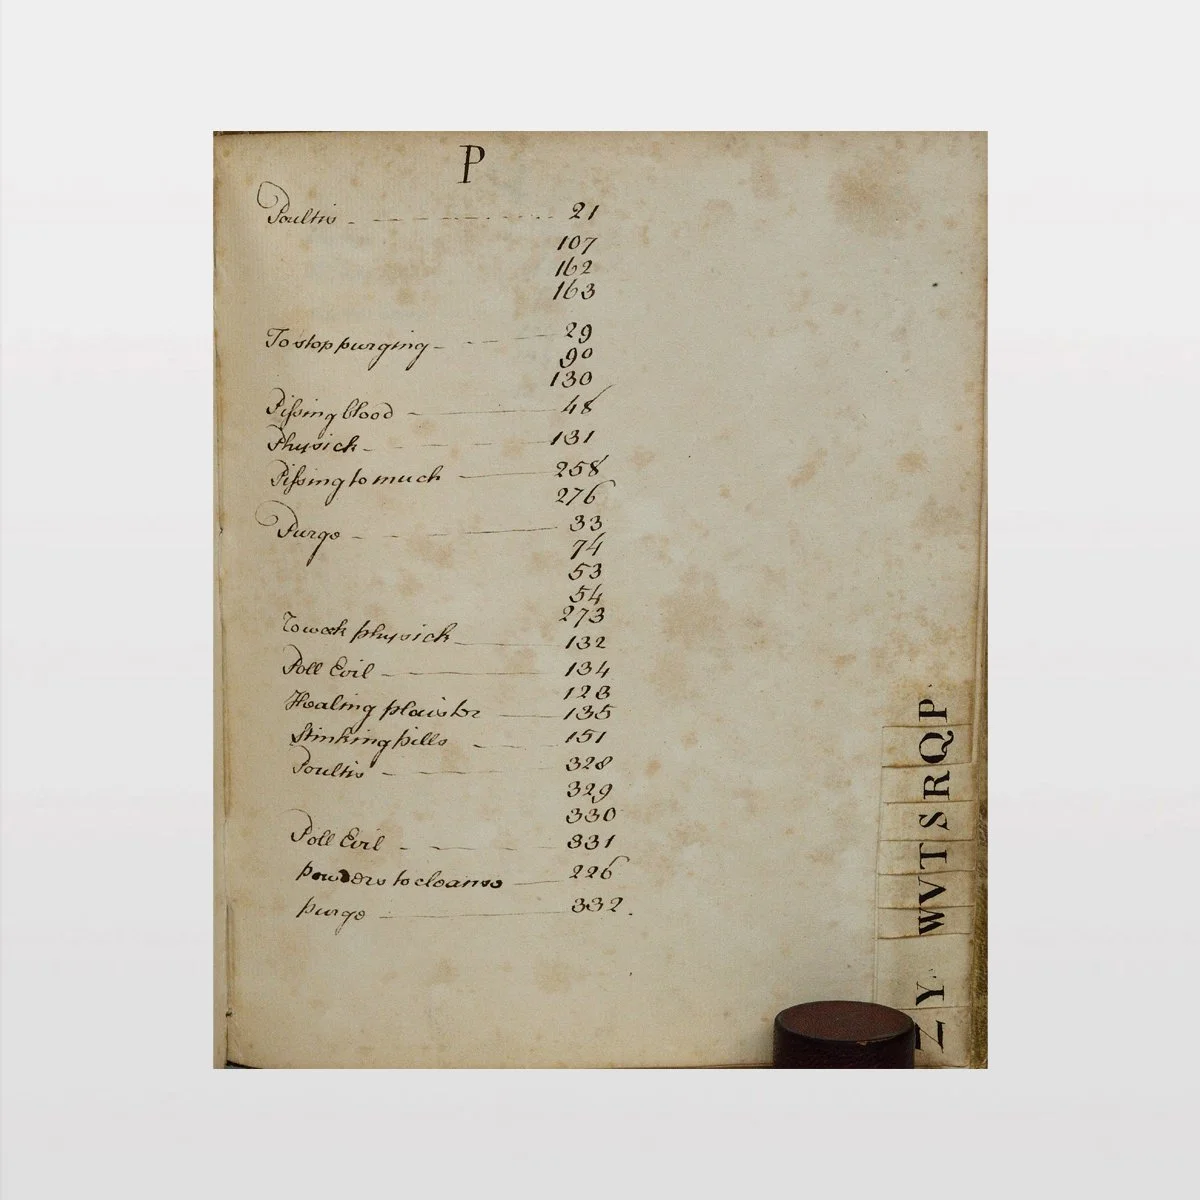 P
Poultis 21
107
162
163
To stop purging 29
90
130
Pissing blood 48
Physick 131
Pissing to much 258
276
Purge 33
74
53
54
273
To work physick 132
Poll Evil 134
123
Healing plaister 135
Stinking pills 151
Poultis 328
329
330
Poll Evil 331
powders to cleanse 226
purge 332.
P
Q
R
S
T
V
W
Y
Z